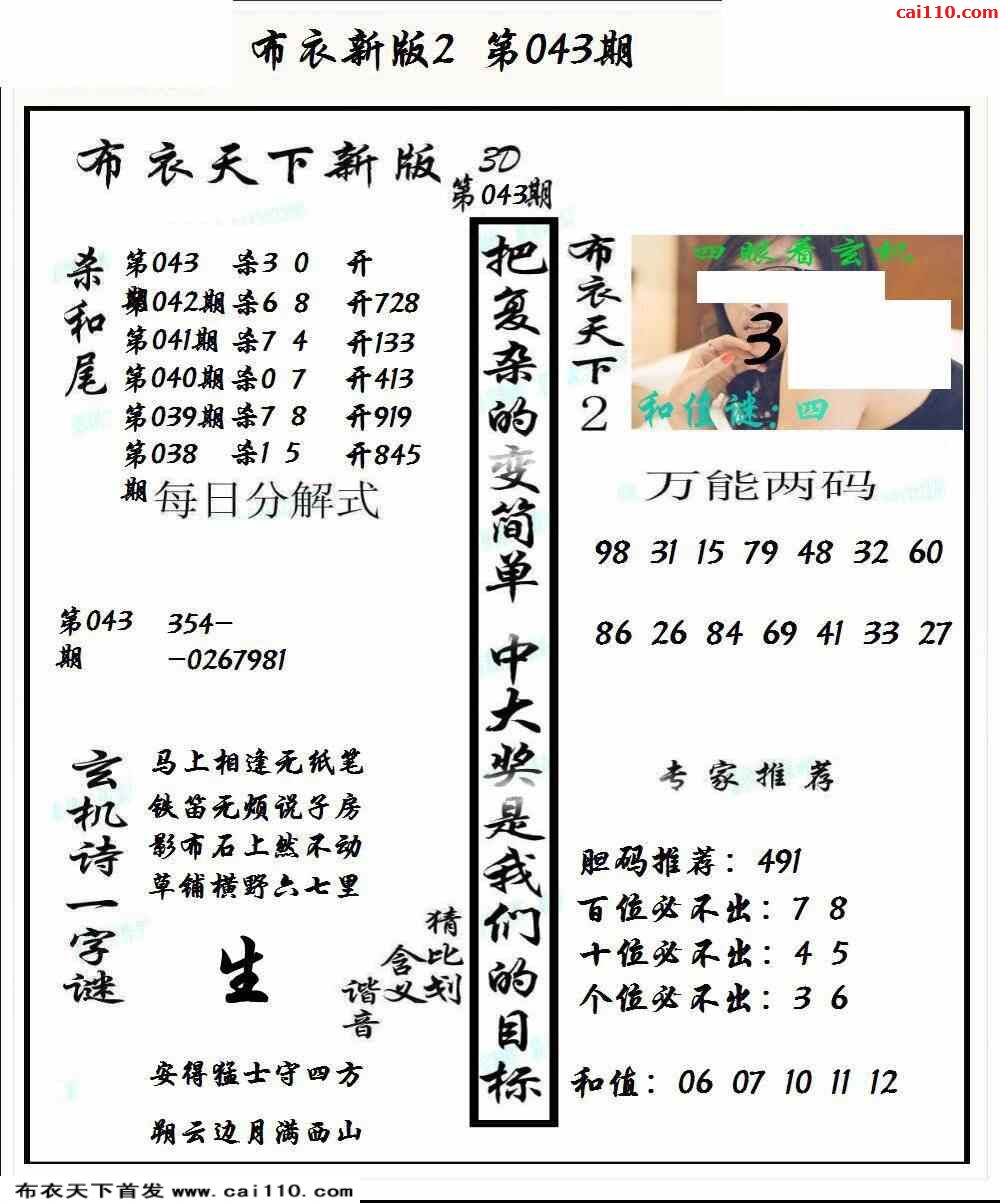 cai110.com
布衣新版2 第043期
布衣天下新版
3D
第043期
杀和尾
第043期 杀3 0 开
第042期 杀6 8 开728
第041期 杀7 4 开133
第040期 杀0 7 开413
第039期 杀7 8 开919
第038期 杀1 5 开845
每日分解式
第043期 354-
-0267981
玄机诗一字谜
马上相逢无纸笔
铁笛无烦说子房
影布石上然不动
草铺横野六七里
生
猜比划
含义
谐音
安得猛士守四方
朔云边月满西山
把复杂的变简单 中大奖是我们的目标
布衣天下2
四眼看玄机
3
和值谜:四
万能两码
98 31 15 79 48 32 60
86 26 84 69 41 33 27
专家推荐
胆码推荐：491
百位必不出：7 8
十位必不出：4 5
个位必不出：3 6
和值：06 07 10 11 12
布衣天下首发 www.cai110.com